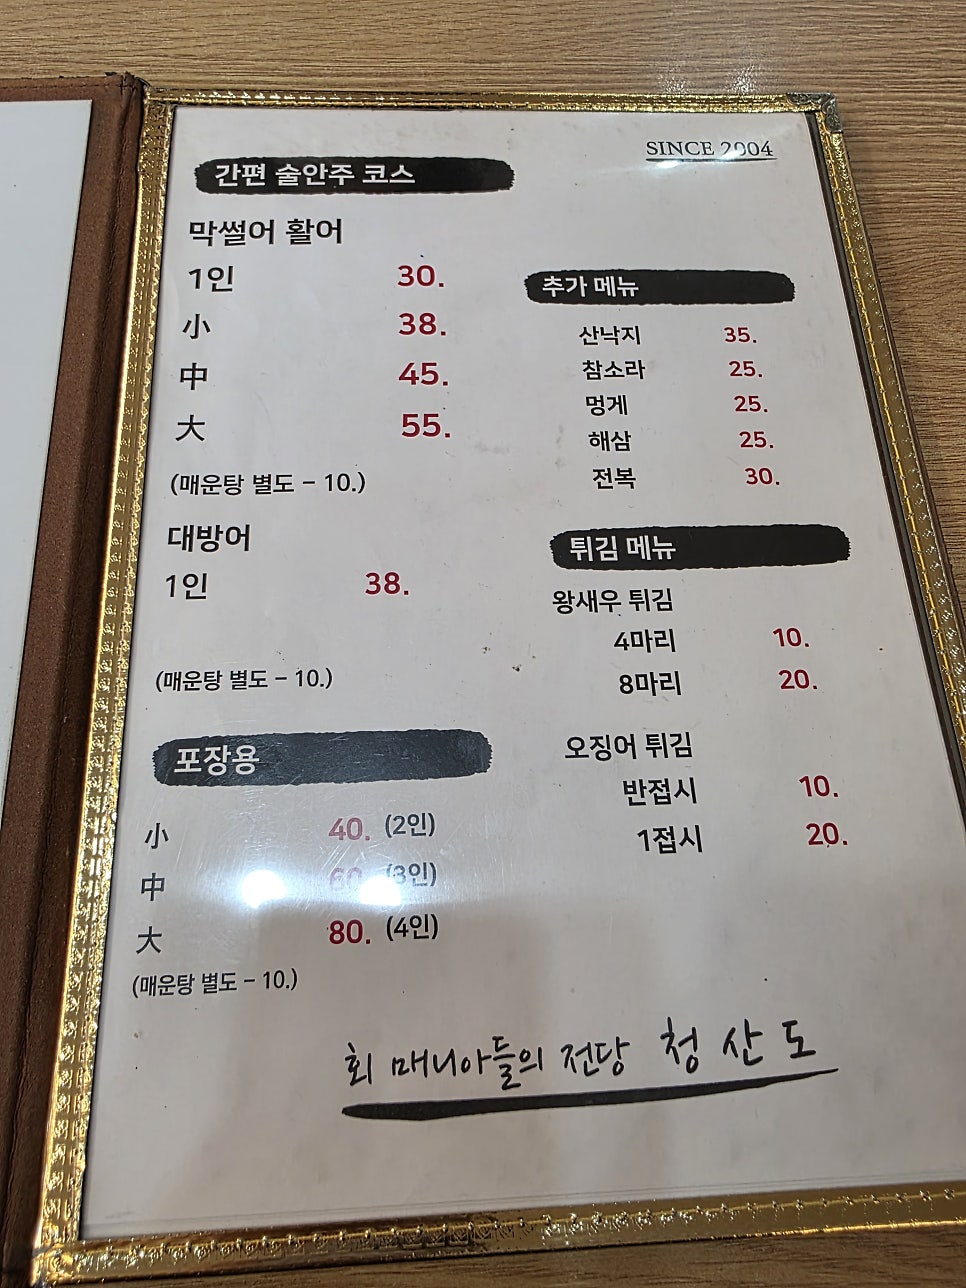 SINCE 2004
간편 술안주 코스
막썰어 활어
1인 30.
小 38.
中 45.
大 55.
(매운탕 별도 - 10.)
대방어
1인 38.
(매운탕 별도 - 10.)
포장용
小 40. (2인)
中 60. (3인)
大 80. (4인)
(매운탕 별도 - 10.)
추가 메뉴
산낙지 35.
참소라 25.
멍게 25.
해삼 25.
전복 30.
튀김 메뉴
왕새우 튀김
4마리 10.
8마리 20.
오징어 튀김
반접시 10.
1접시 20.
회 매니아들의 전당 청산도